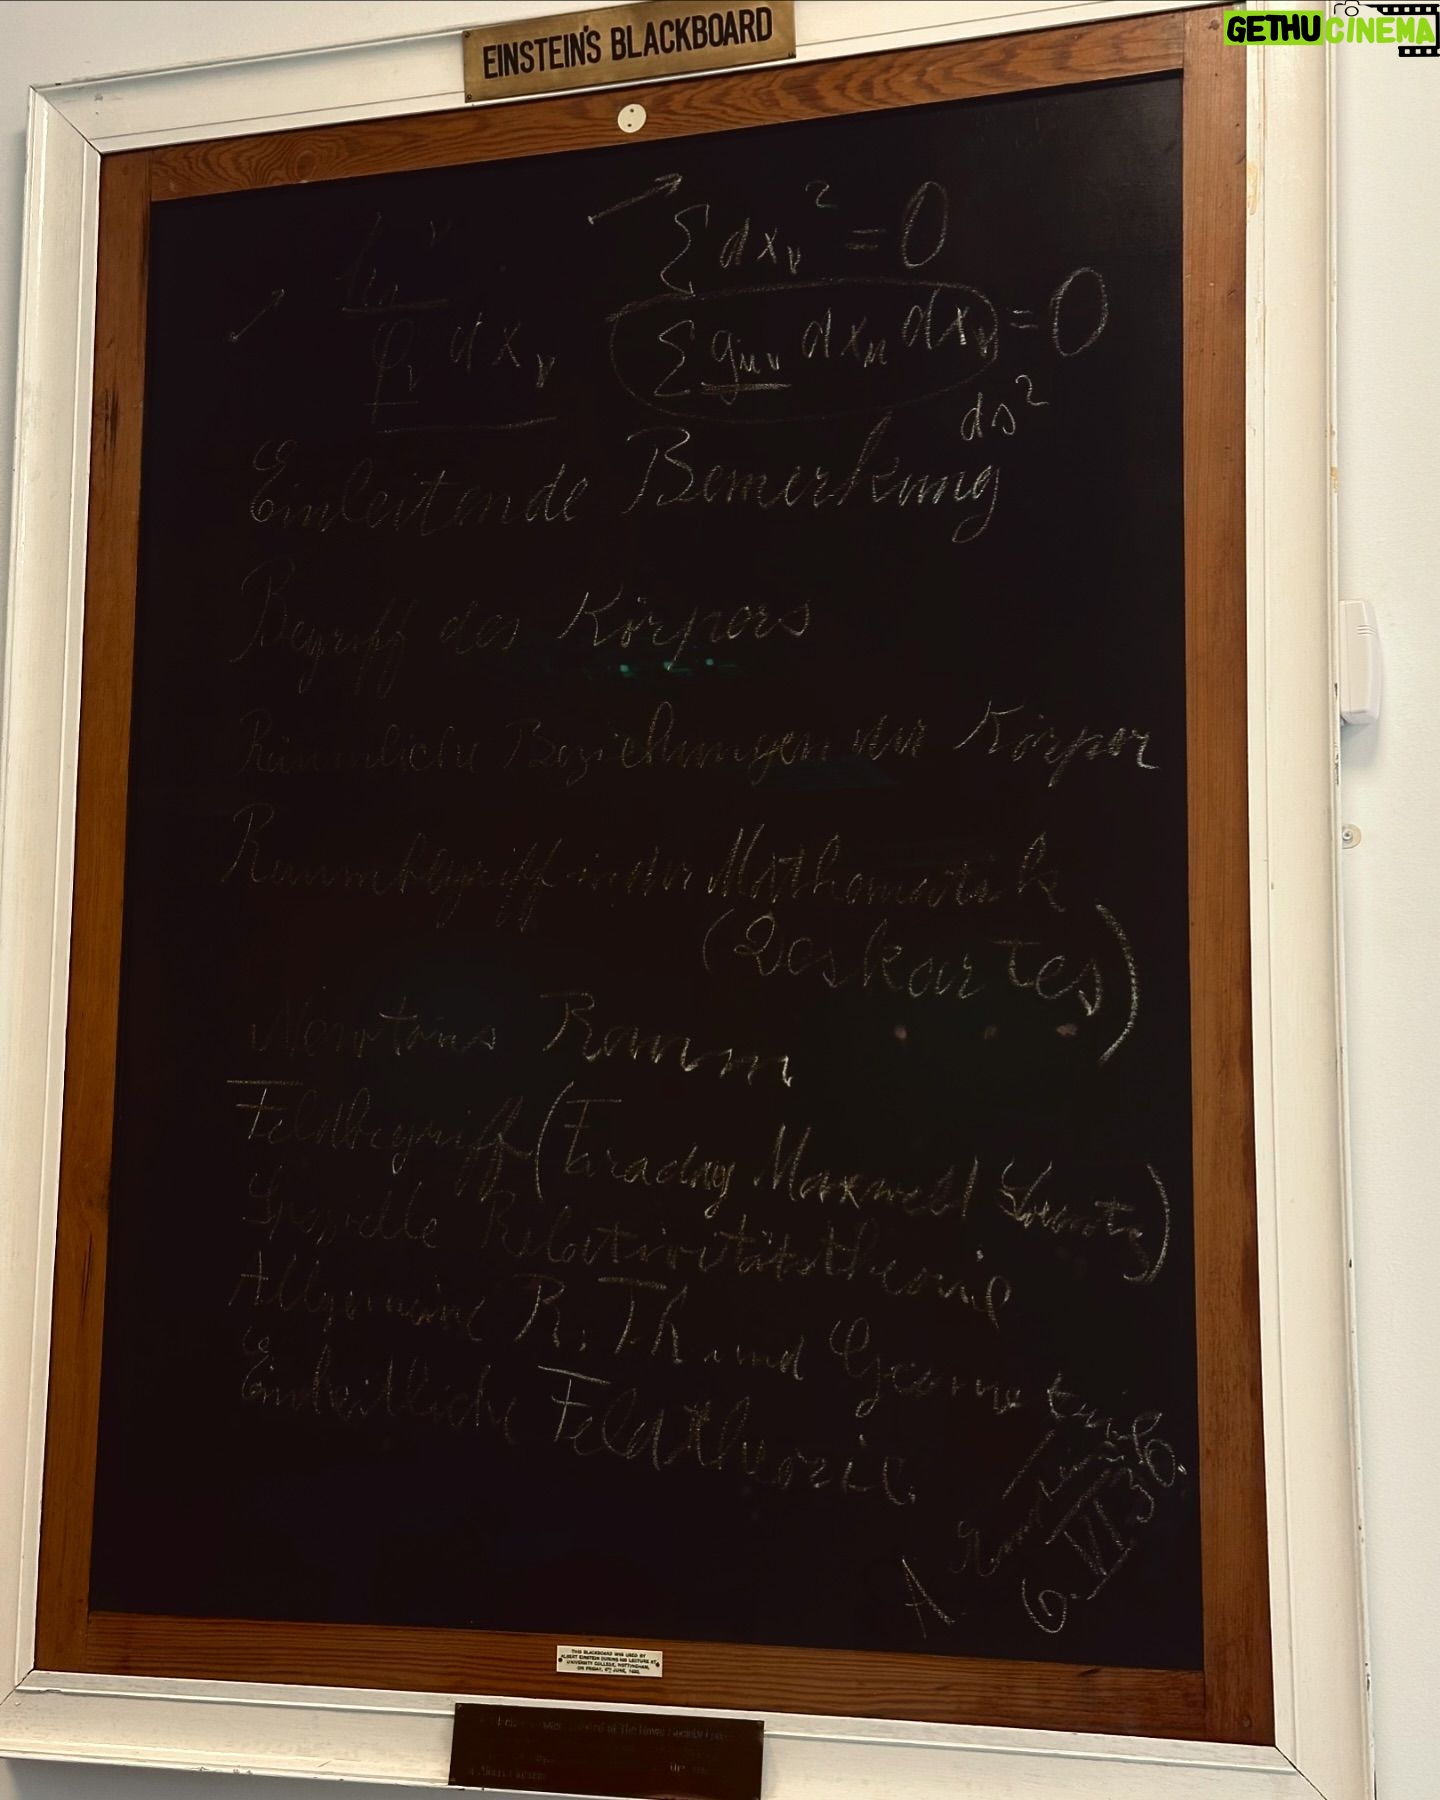 EINSTEIN'S BLACKBOARD
GETHUCINEMA
Σ dxν² = 0
φν dxν
Σ gμν dxμ dxν = 0
ds²
Einleitende Bemerkung
Begriff des Körpers
Räumliche Beziehungen der Körper
Raumbegriff in der Mathematik
(Deskartes)
Newtons Raum
Feldbegriff (Faraday Maxwell Lorentz)
Spezielle Relativitätstheorie
Allgemeine R. Th. und Geometrie
Einheitliche Feldtheorie.
A. Einstein
6. VI 30.
THIS BLACKBOARD WAS USED BY
ALBERT EINSTEIN DURING HIS LECTURE AT
UNIVERSITY COLLEGE, NOTTINGHAM,
ON FRIDAY, 6TH JUNE, 1930.